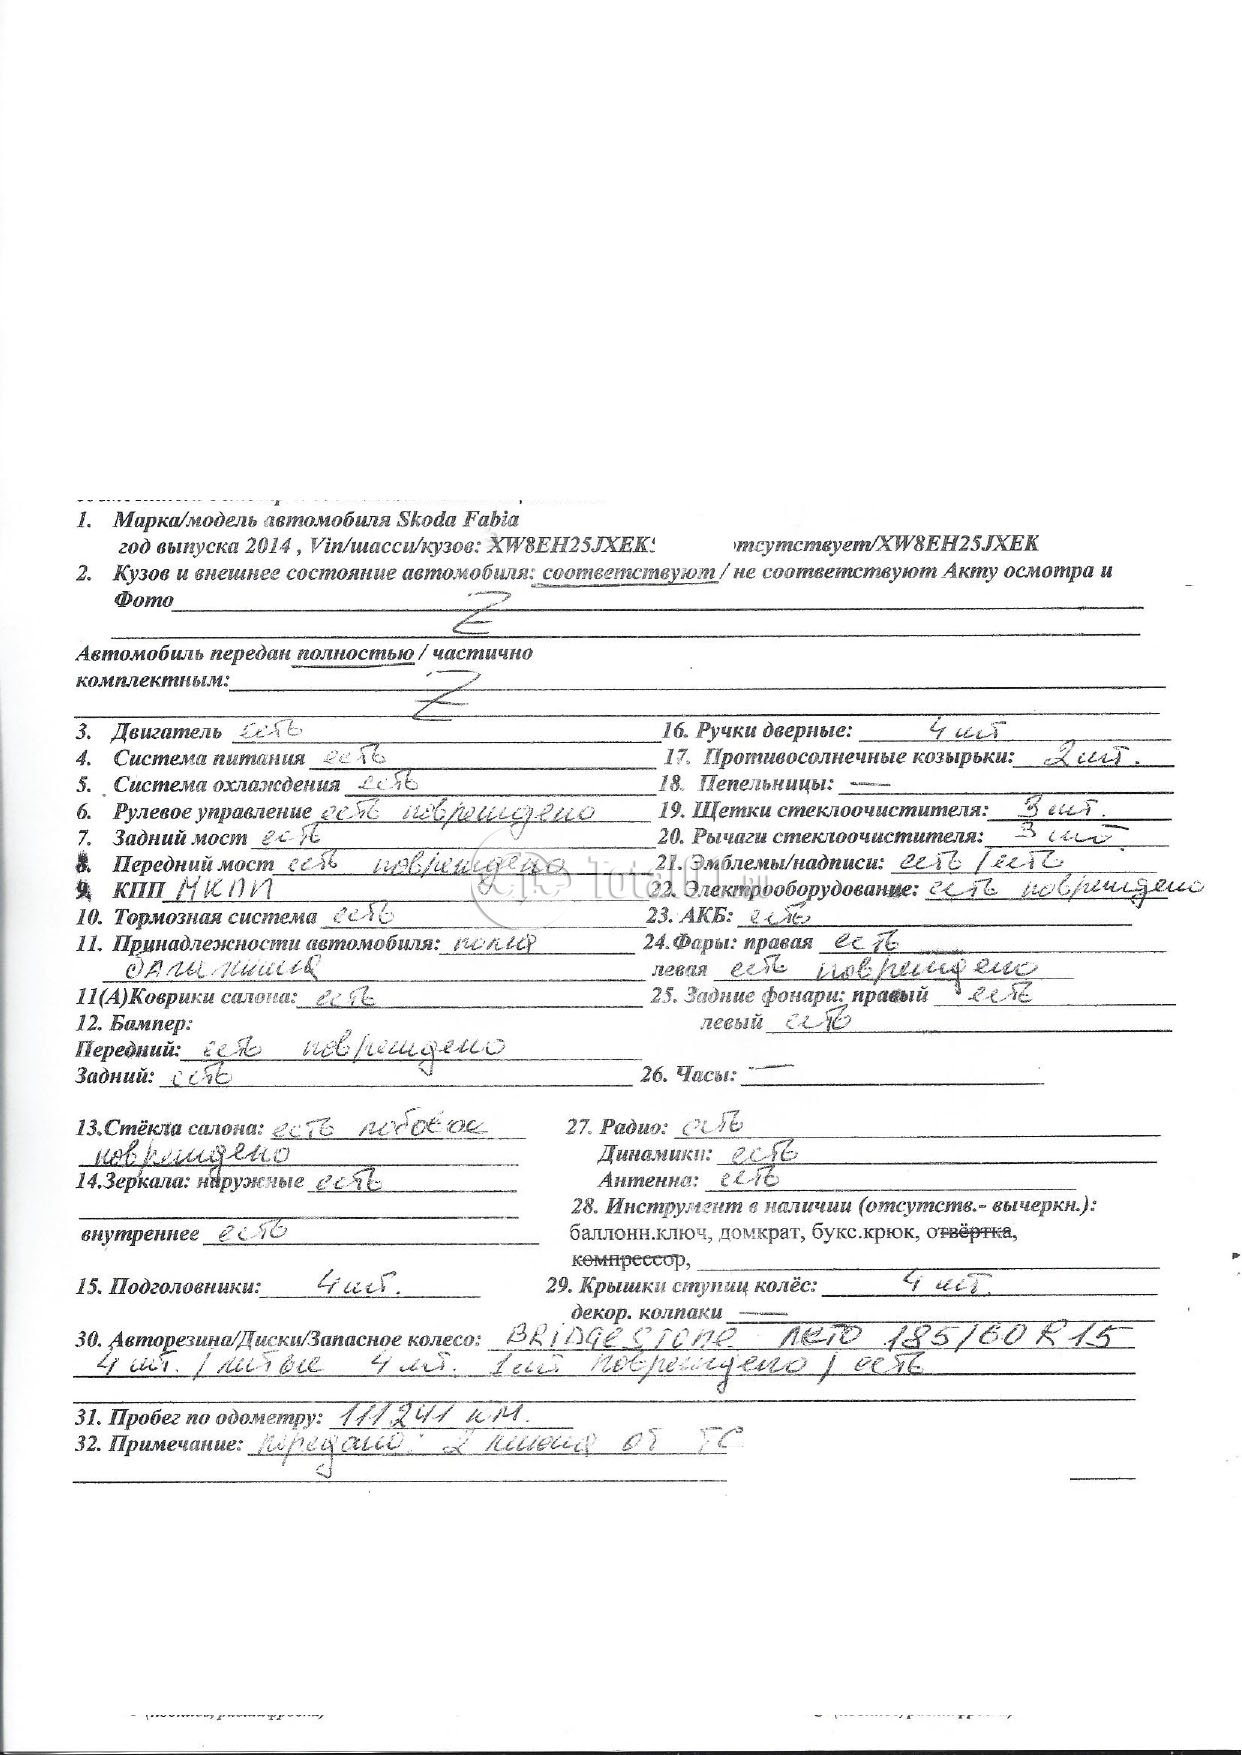 1. Марка/модель автомобиля Skoda Fabia
год выпуска 2014 , Vin/шасси/кузов: XW8EH25JXEK отсутствует/XW8EH25JXEK
2. Кузов и внешнее состояние автомобиля: соответствуют / не соответствуют Акту осмотра и
Фото Z
Автомобиль передан полностью / частично
комплектным: Z
3. Двигатель есть 16. Ручки дверные: 4 шт
4. Система питания есть 17. Противосолнечные козырьки: 2 шт.
5. Система охлаждения есть 18. Пепельницы: —
6. Рулевое управление есть повреждено 19. Щетки стеклоочистителя: 3 шт.
7. Задний мост есть 20. Рычаги стеклоочистителя: 3 шт.
8. Передний мост есть повреждено 21. Эмблемы/надписи: есть / есть
9. КПП МКПП 22. Электрооборудование: есть повреждено
Total01.RU
10. Тормозная система есть 23. АКБ: есть
11. Принадлежности автомобиля: 24. Фары: правая есть
левая есть повреждено
11(А)Коврики салона: есть 25. Задние фонари: правый есть
12. Бампер: левый есть
Передний: есть повреждено
Задний: есть 26. Часы: —
13.Стёкла салона: есть лобовое 27. Радио: есть
повреждено Динамики: есть
14.Зеркала: наружные есть Антенна: есть
28. Инструмент в наличии (отсутств.- вычеркн.):
внутреннее есть баллонн.ключ, домкрат, букс.крюк, отвёртка,
компрессор,
15. Подголовники: 4 шт. 29. Крышки ступиц колёс: 4 шт.
декор. колпаки —
30. Авторезина/Диски/Запасное колесо: BRIDGESTONE лето 185/60 R15
4 шт. / литые 4 шт. 1 шт повреждено / есть
31. Пробег по одометру: 111241 км.
32. Примечание: передано: 2 ключа от ТС